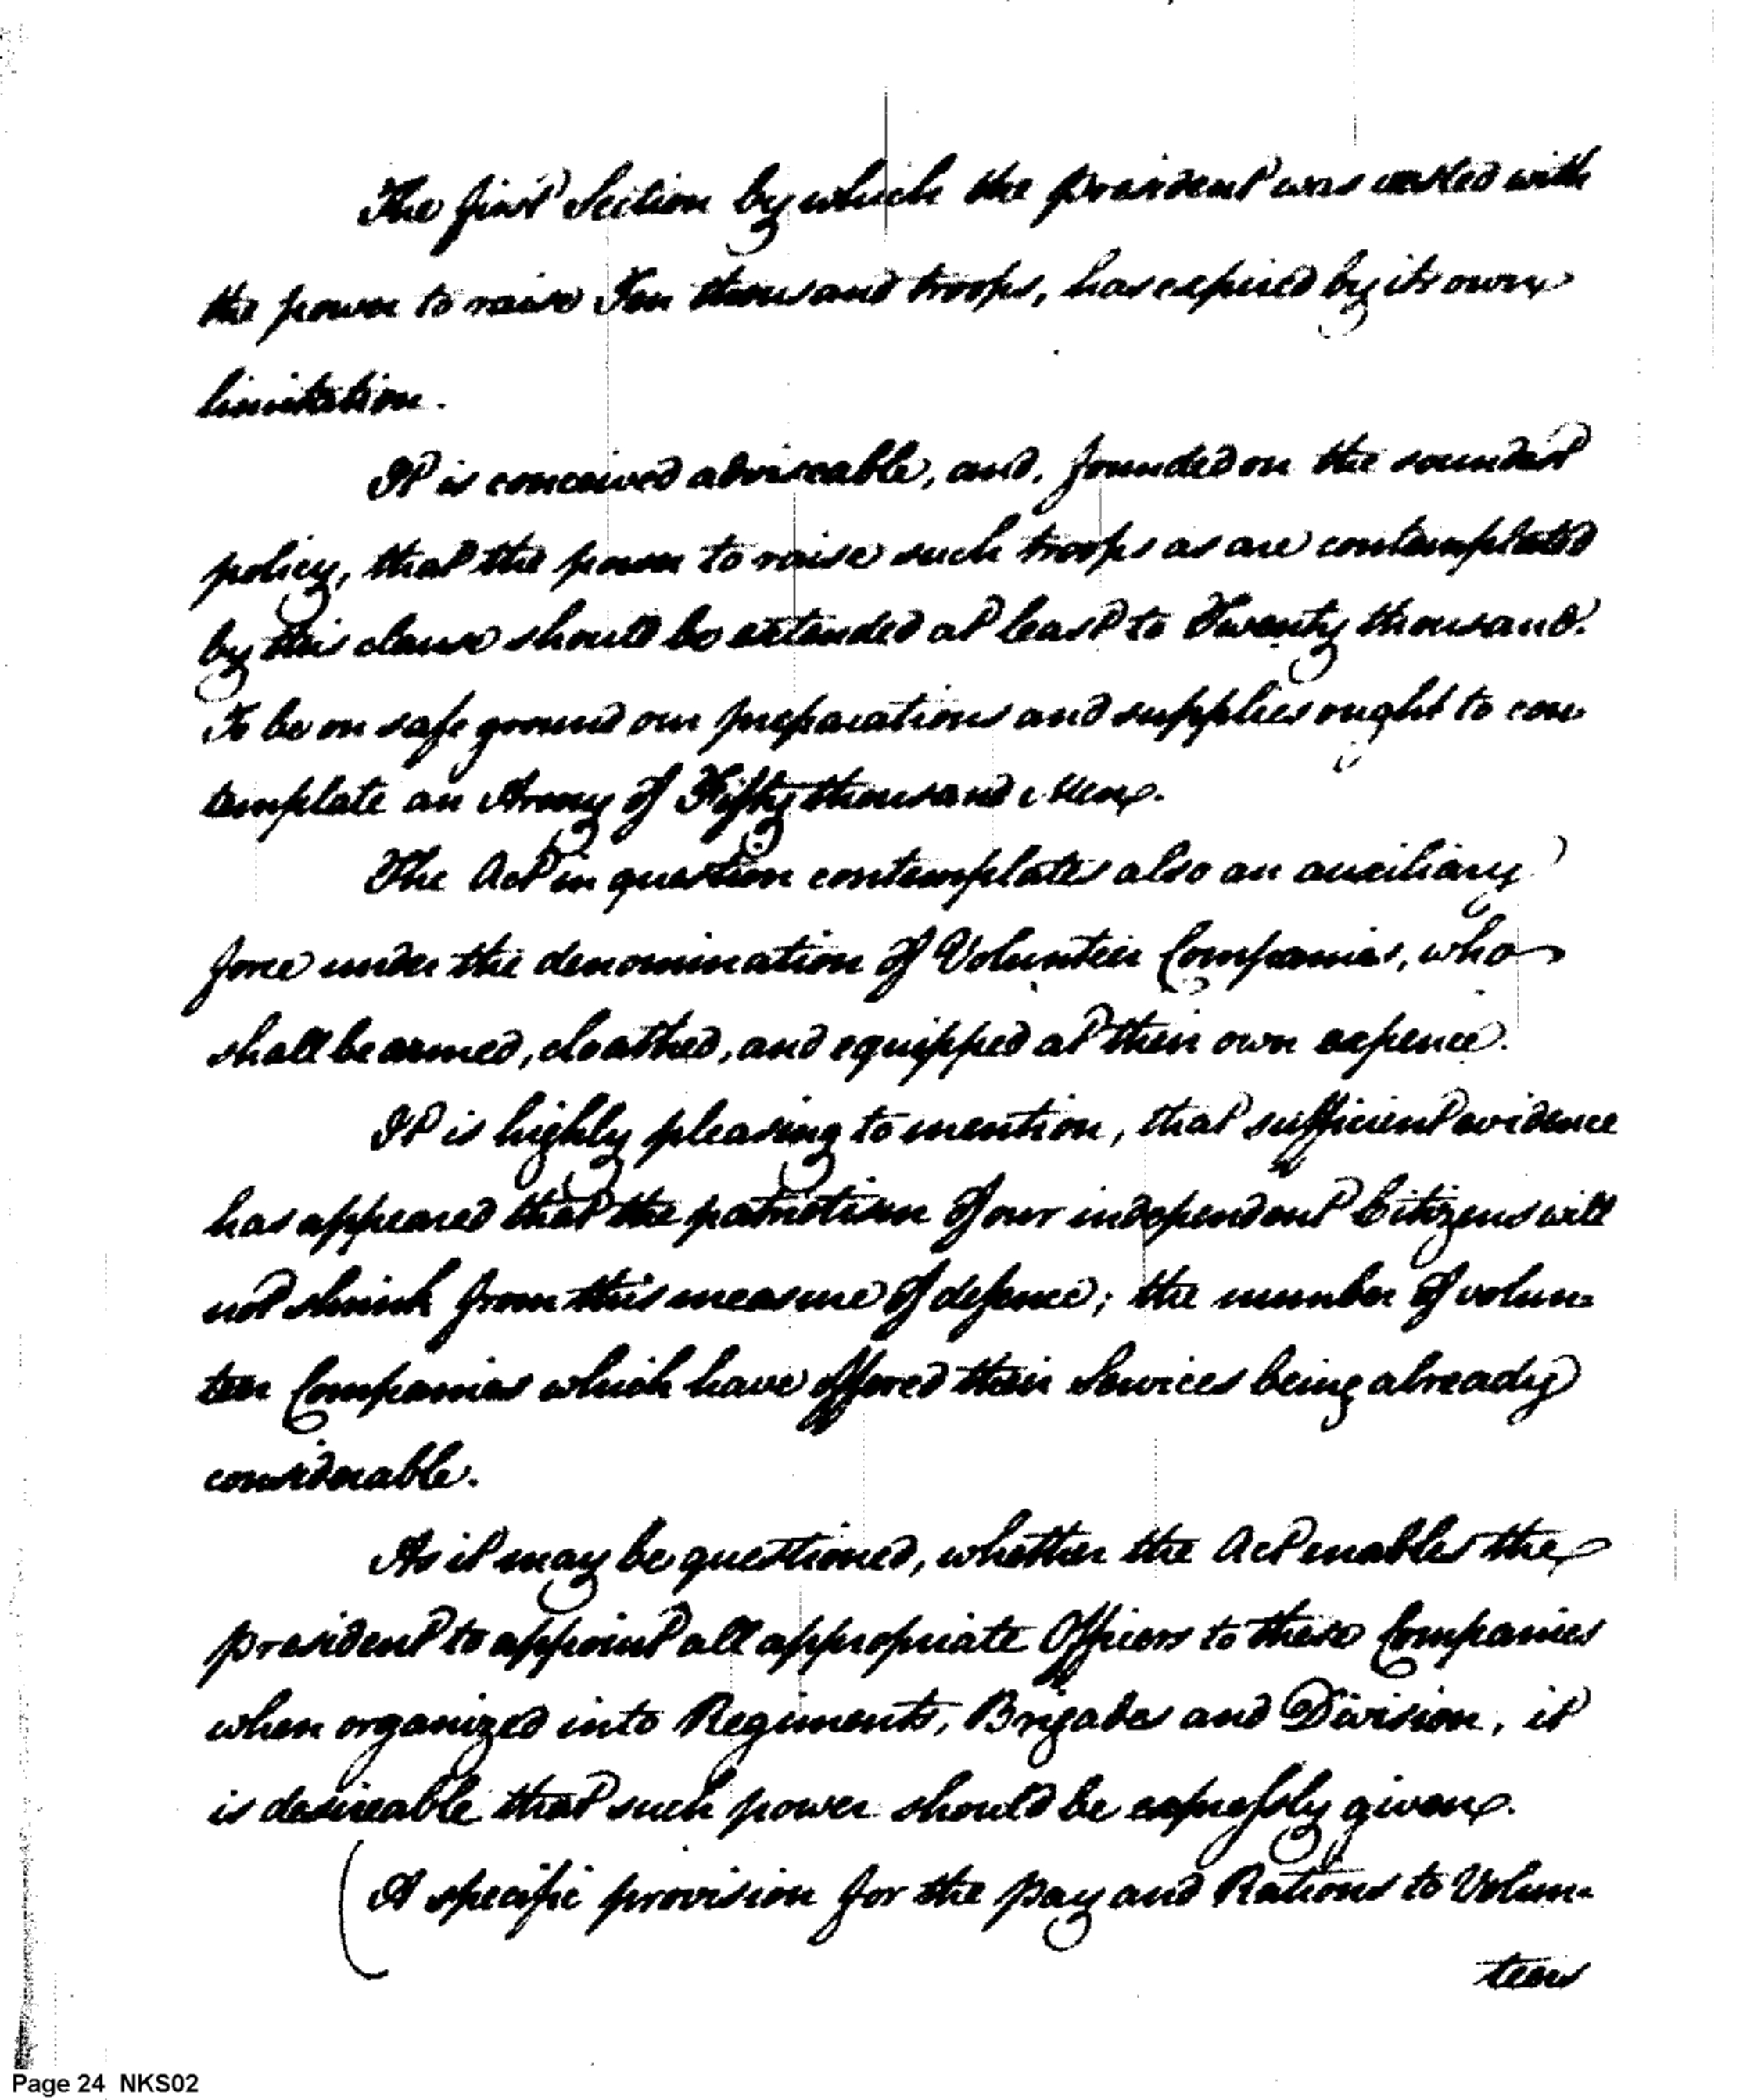 The first Section by which the president was vested with
the power to raise Ten thousand troops, has expired by its own
limitation.
It is conceived adviseable, and, founded on the soundest
policy, that the power to raise such troops as are contemplated
by this clause should be extended at least to Twenty thousand.
To be on safe ground our preparations and supplies ought to con
template an Army of Fifty thousand Men.
The Act in question contemplates also an auxiliary
force under the denomination of Volunteer Companies, who
shall be armed, cloathed, and equipped at their own expence.
It is highly pleasing to mention, that sufficient evidence
has appeared that the patriotism of our independent Citizens will
not shrink from this measure of defence; the number of volun=
teer Companies which have offered their Services being already
considerable.
As it may be questioned, whether the Act enables the
president to appoint all appropriate Officers to these Companies
when organized into Regiments, Brigades and Division, it
is desireable that such power should be expressly given.
(A specific provision for the pay and Rations to Volun=
teers
Page 24 NKS02